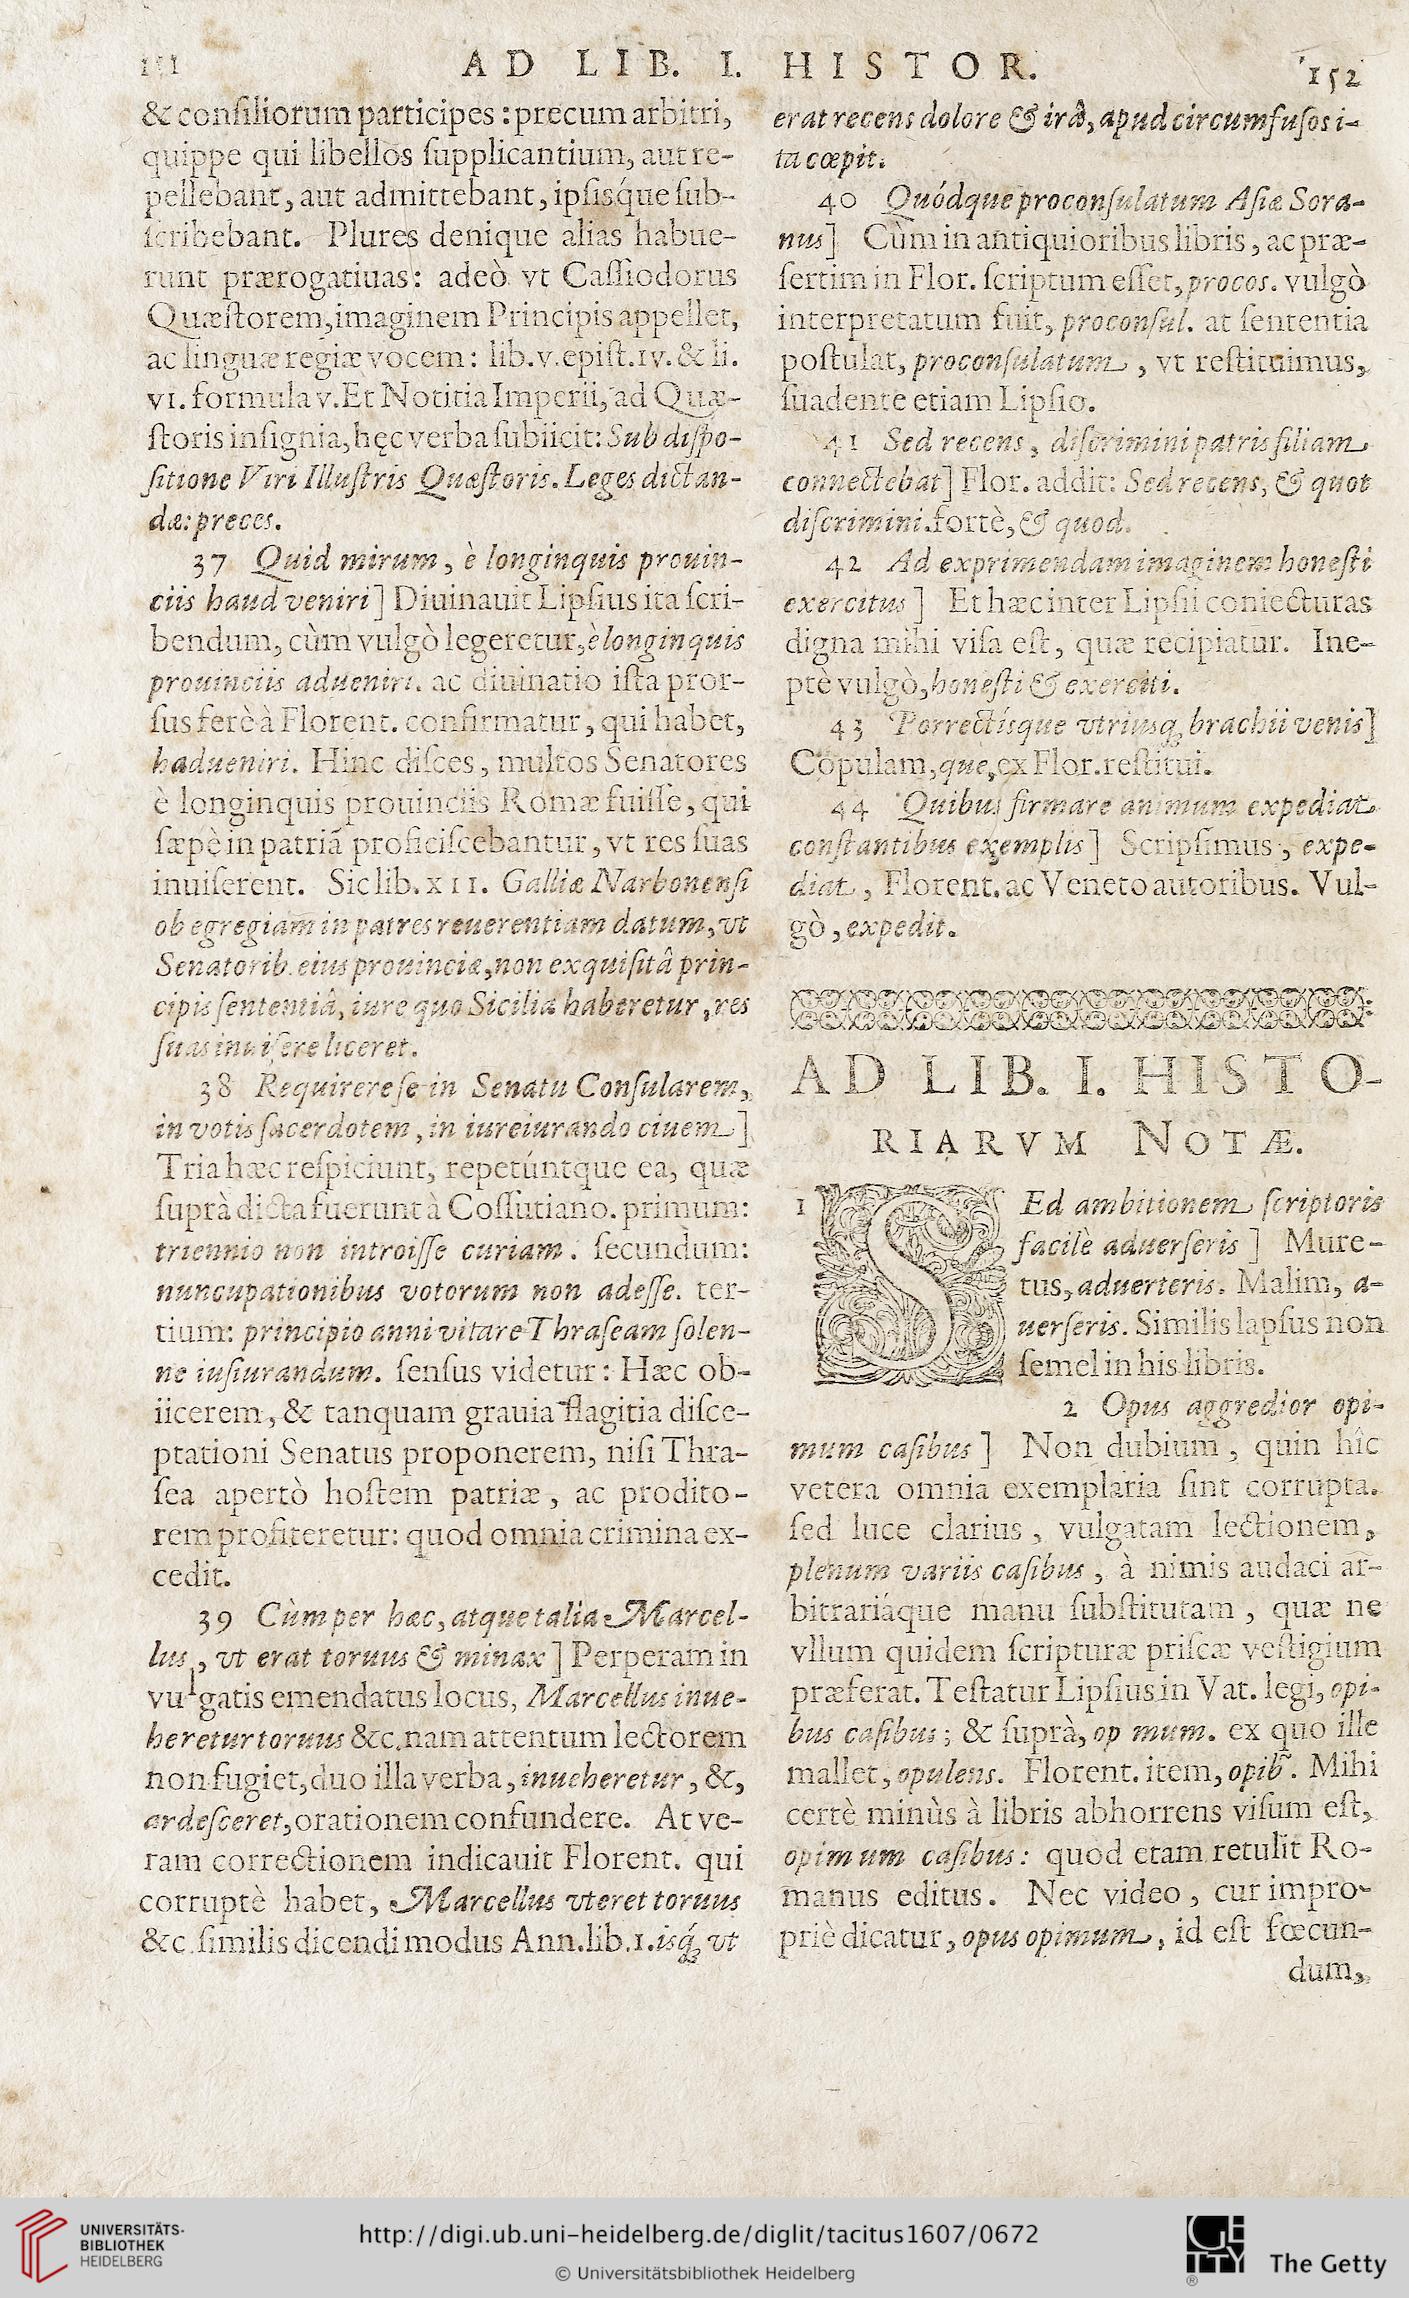 151 AD LIB. I. HISTOR. 152
& conſiliorum participes : precum arbitri,
quippe qui libellos ſupplicantium, aut re-
pellebant, aut admittebant, ipſisq́ue ſub-
ſcribebant. Plures denique alias habue-
runt prærogatiuas: adeò vt Caſſiodorus
Quæſtorem, imaginem Principis appellet,
ac linguæ regiæ vocem: lib. v. epiſt. IV. & li.
VI. formula v. Et Notitia Imperii, ad Quæ-
ſtoris inſignia, hęc verba ſubiicit: Sub diſpo-
ſitione Viri Illuſtris Quæſtoris. Leges dictan-
dæ: preces.
37 Quid mirum, è longinquis prouin-
ciis haud veniri] Diuinauit Lipſius ita ſcri-
bendum, cùm vulgò legeretur, è longinquis
prouinciis adueniri. ac diuinatio iſta pror-
ſus ferè à Florent. confirmatur, qui habet,
hadueniri. Hinc diſces, multos Senatores
è longinquis prouinciis Romæ fuiſſe, qui
ſæpè in patriã proficiſcebantur, vt res ſuas
inuiſerent. Sic lib. XII. Galliæ Narbonenſi
ob egregiam in patres reuerentiam datum, vt
Senatorib. eius prouinciæ, non exquiſitâ prin-
cipis ſententiâ, iure quo Sicilia haberetur, res
ſuas inuiſere liceret.
38 Requirere ſe in Senatu Conſularem,
in votis ſacerdotem, in iureiurando ciuem]
Tria hæc reſpiciunt, repetúntque ea, quæ
ſuprà dicta fuerunt à Coſſutiano. primum:
triennio non introiſſe curiam. ſecundùm:
nuncupationibus votorum non adeſſe. ter-
tium: principio anni vitare Thraſeam ſolen-
ne iuſiurandum. ſenſus videtur: Hæc ob-
iicerem, & tanquam grauia flagitia diſce-
ptationi Senatus proponerem, niſi Thra-
ſea apertò hoſtem patriæ, ac prodito-
rem profiteretur: quod omnia crimina ex-
cedit.
39 Cùm per hæc, atque talia Marcel-
lus, vt erat toruus & minax] Perperam in
vulgatis emendatus locus, Marcellus inue-
heretur toruus &c. nam attentum lectorem
non fugiet, duo illa verba, inueheretur, &,
ardeſceret, orationem confundere. At ve-
ram correctionem indicauit Florent. qui
corruptè habet, Marcellus vteret toruus
&c. ſimilis dicendi modus Ann. lib. 1. isq́; vt
erat recens dolore & irâ, apud circumfuſos i-
ta cœpit.
40 Quódque proconſulatum Aſiæ Sora-
nus] Cùm in antiquioribus libris, ac præ-
ſertim in Flor. ſcriptum eſſet, procos. vulgò
interpretatum fuit, proconſul. at ſententia
poſtulat, proconſulatum, vt reſtituimus,
ſuadente etiam Lipſio.
41 Sed recens, diſcrimini patris filiam
connectebat] Flor. addit: Sed recens, & quot
diſcrimini. fortè, & quod.
42 Ad exprimendam imaginem honeſti
exercitus] Et hæc inter Lipſii coniecturas
digna mihi viſa eſt, quæ recipiatur. Ine-
ptè vulgò, honeſti & exerciti.
43 Porrectísque vtriusq; brachii venis]
Copulam, que, ex Flor. reſtitui.
44 Quibus firmare animum expediat
conſtantibus exemplis] Scripſimus, expe-
diat, Florent. ac Veneto autoribus. Vul-
gò, expedit.
AD LIB. I. HISTO-
RIARVM NOTÆ.
1 SEd ambitionem ſcriptoris
facilè aduerſeris] Mure-
tus, aduerteris. Malim, a-
uerſeris. Similis lapſus non
ſemel in his libris.
2 Opus aggredior opi-
mum caſibus] Non dubium, quin hîc
vetera omnia exemplaria ſint corrupta.
ſed luce clarius, vulgatam lectionem,
plenum variis caſibus, à nimis audaci ar-
bitrariáque manu ſubſtitutam, quæ ne
vllum quidem ſcripturæ priſcæ veſtigium
præferat. Teſtatur Lipſius in Vat. legi, opi-
bus caſibus; & ſuprà, op mum. ex quo ille
mallet, opulens. Florent. item, opib̃. Mihi
certè minùs à libris abhorrens viſum eſt,
opimum caſibus: quod etam retulit Ro-
manus editus. Nec video, cur impro-
priè dicatur, opus opimum, id eſt fœcun-
dum,
UNIVERSITÄTS-
BIBLIOTHEK
HEIDELBERG
http://digi.ub.uni-heidelberg.de/diglit/tacitus1607/0672
© Universitätsbibliothek Heidelberg
GETTY
®
The Getty